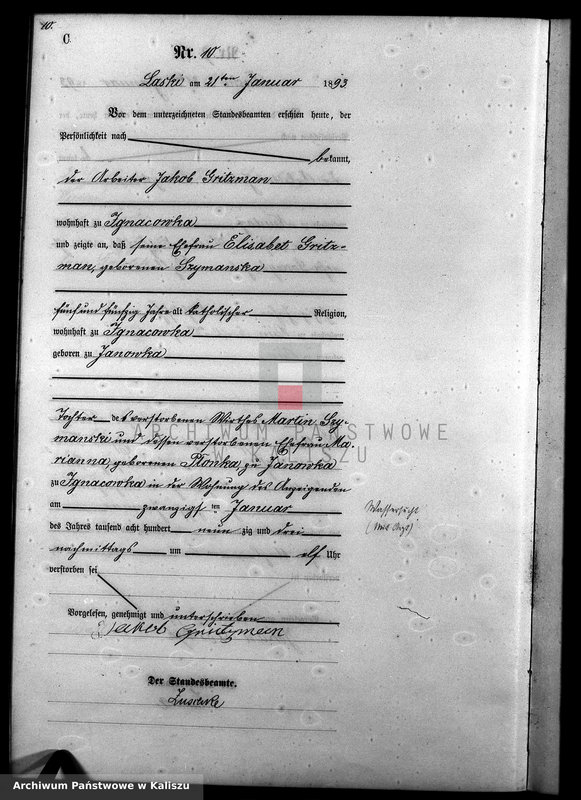 10.
C
Nr. 10
Laski am 21ten Januar 1893
Vor dem unterzeichneten Standesbeamten erschien heute, der
Persönlichkeit nach
bekannt,
der Arbeiter Jakob Gritzman
wohnhaft zu Ignacowka
und zeigte an, daß seine Ehefrau Elisabet Gritz-
man, geborenen Szymanska
fünf und fünfzig Jahre alt katholischer Religion,
wohnhaft zu Ignacowka
geboren zu Janowka
Tochter des verstorbenen Wirthes Martin Szy-
manski und dessen verstorbenen Ehefrau Ma-
rianna, geborenen Plonka, zu Janowka
ARCHIWUM PAŃSTWOWE
W KALISZU
zu Ignacowka in der Wohnung des Anzeigenden
am zwanzigsten Januar
des Jahres tausend acht hundert neun zig und drei
nachmittags um elf Uhr
verstorben sei
Wassersucht
Vorgelesen, genehmigt und unterschrieben
Jakob Gritzman
Der Standesbeamte.
Archiwum Państwowe w Kaliszu